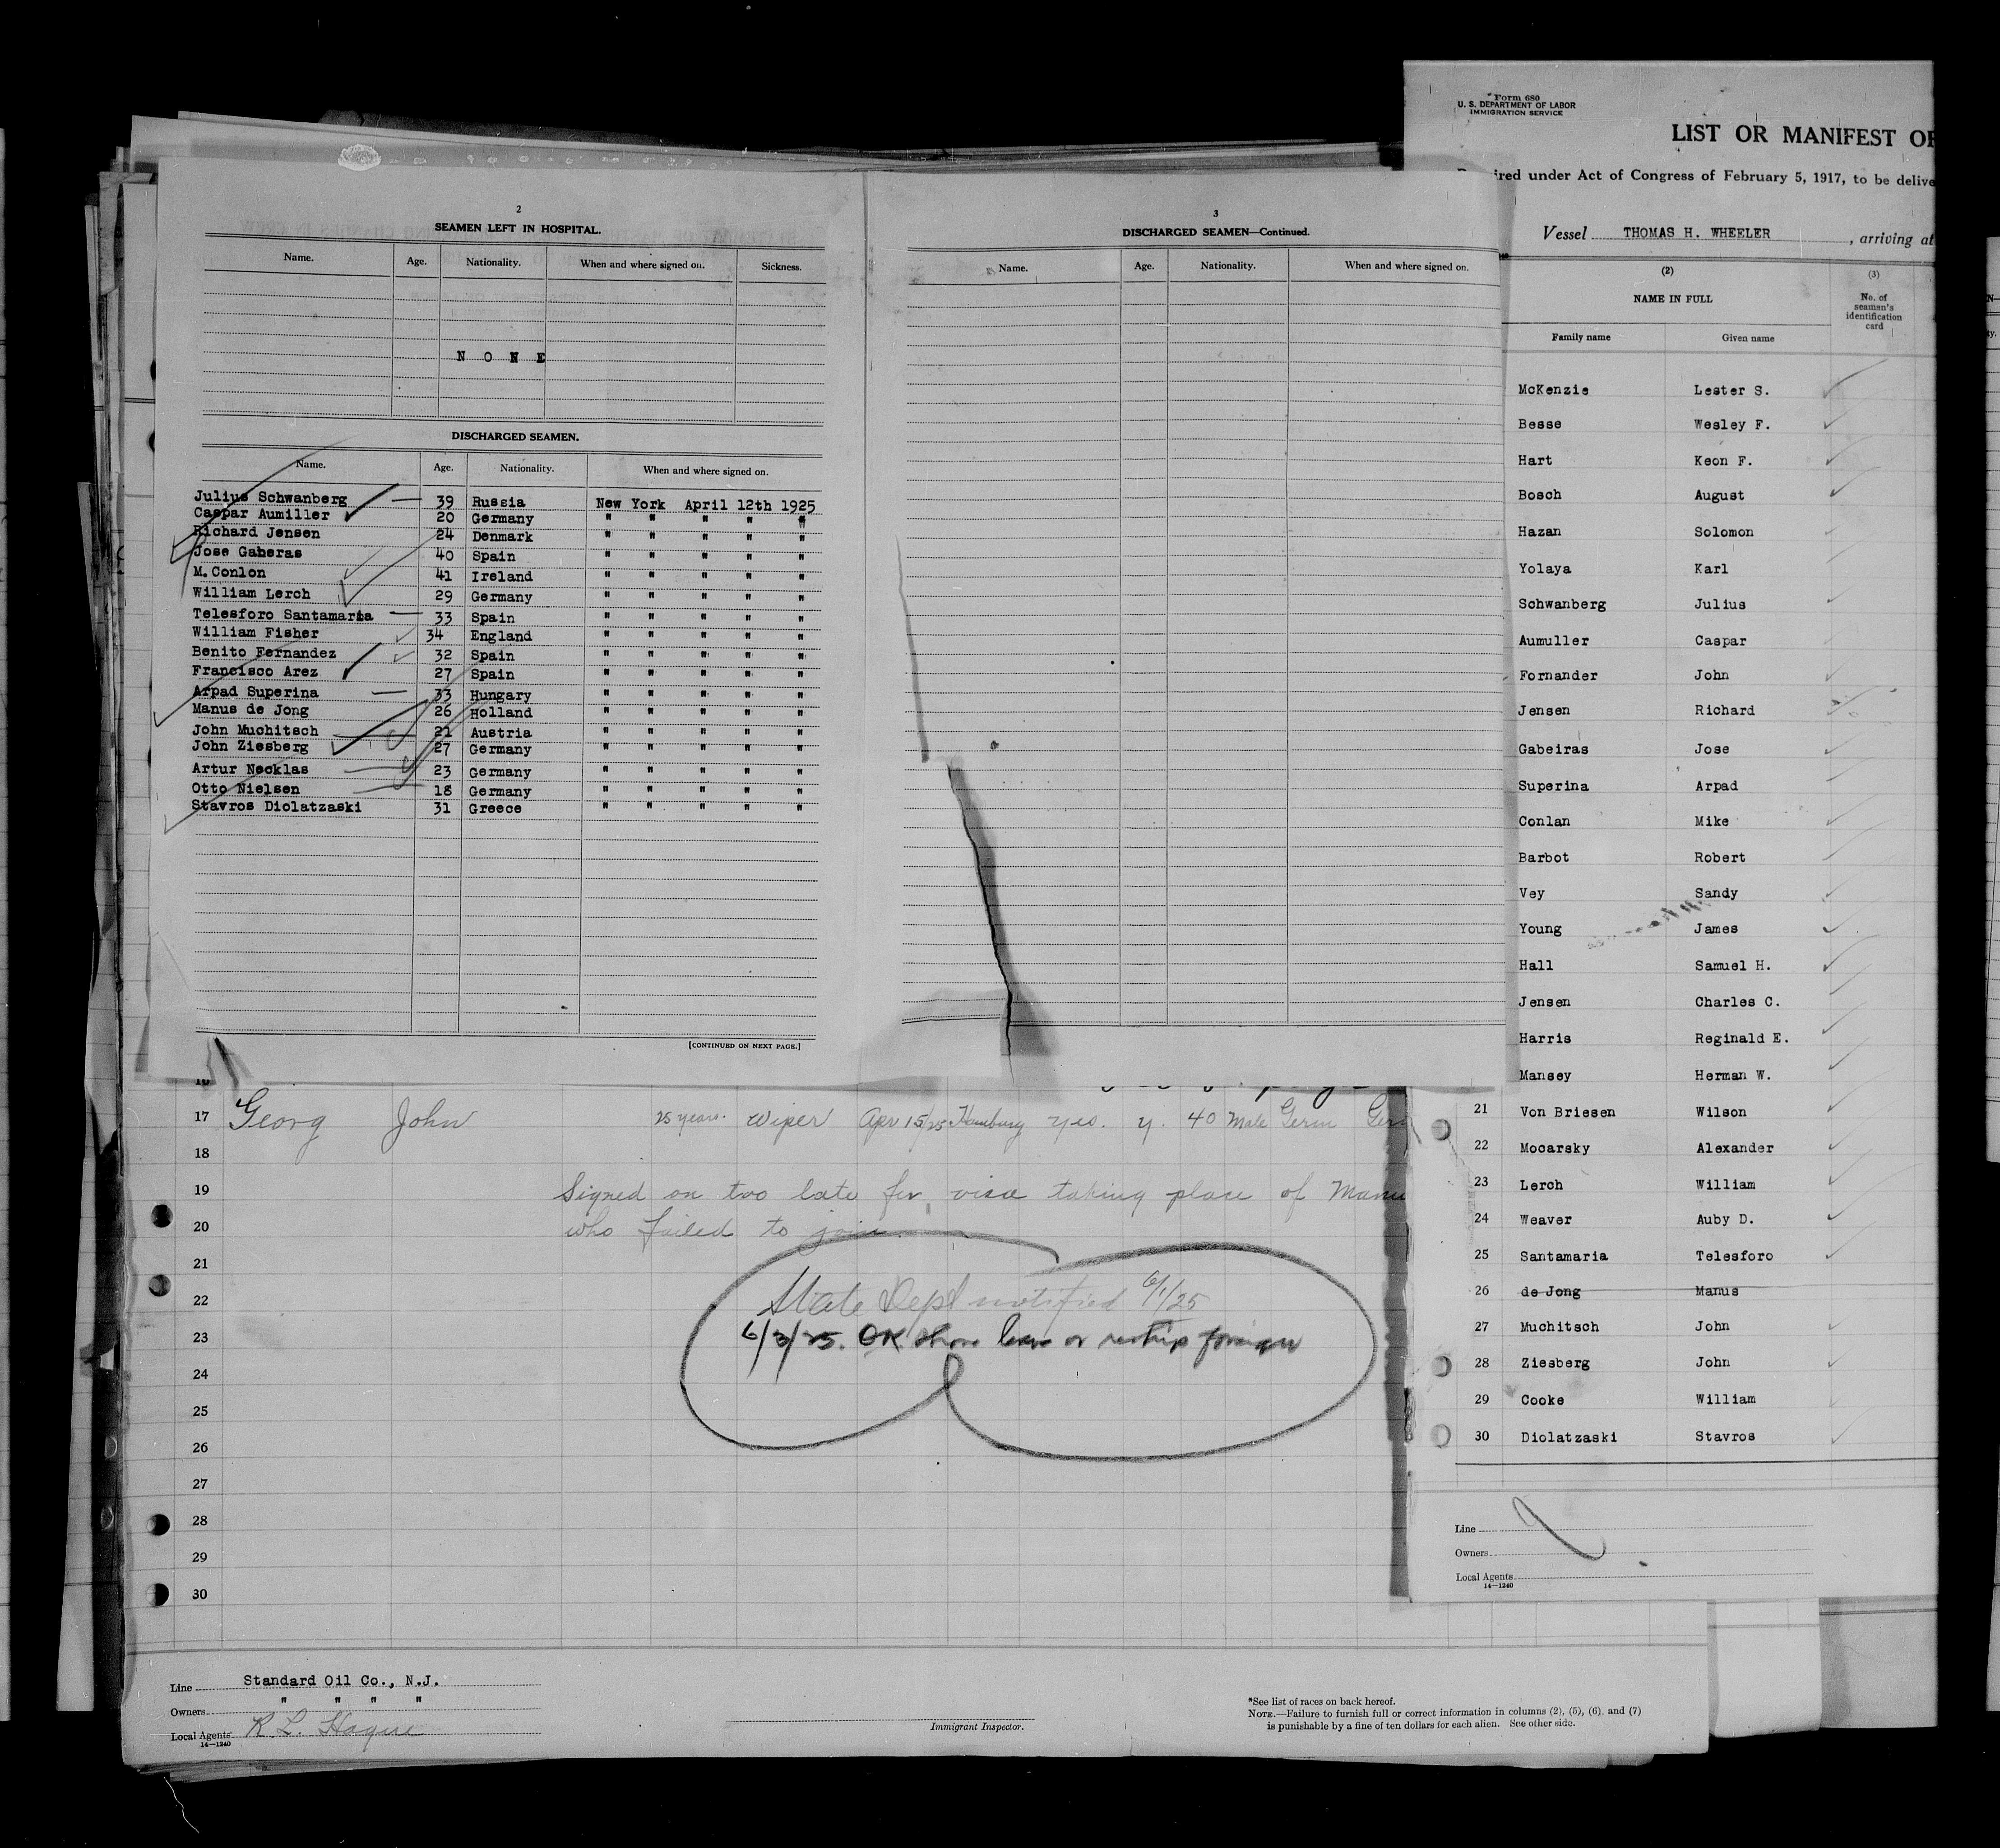 2
SEAMEN LEFT IN HOSPITAL.
Name. Age. Nationality. When and where signed on. Sickness.
N O N E
DISCHARGED SEAMEN.
Name. Age. Nationality. When and where signed on.
Julius Schwanberg 39 Russia New York April 12th 1925
Caspar Aumiller 20 Germany " " " " "
Richard Jensen 24 Denmark " " " " "
Jose Gaberas 40 Spain " " " " "
M. Conlon 41 Ireland " " " " "
William Lerch 29 Germany " " " " "
Telesforo Santamaria 33 Spain " " " " "
William Fisher 34 England " " " " "
Benito Fernandez 32 Spain " " " " "
Francisco Arez 27 Spain " " " " "
Arpad Superina 33 Hungary " " " " "
Manus de Jong 26 Holland " " " " "
John Muchitsch 21 Austria " " " " "
John Ziesberg 27 Germany " " " " "
Artur Necklas 23 Germany " " " " "
Otto Nielsen 18 Germany " " " " "
Stavros Diolatzaski 31 Greece " " " " "
[CONTINUED ON NEXT PAGE.]
3
DISCHARGED SEAMEN—Continued.
Name. Age. Nationality. When and where signed on.
Form 680
U. S. DEPARTMENT OF LABOR
IMMIGRATION SERVICE
LIST OR MANIFEST OF
ired under Act of Congress of February 5, 1917, to be delive
Vessel THOMAS H. WHEELER, arriving at
(2) (3)
NAME IN FULL
No. of seaman's identification card
Family name Given name
McKenzie Lester S.
Besse Wesley F.
Hart Keon F.
Bosch August
Hazan Solomon
Yolaya Karl
Schwanberg Julius
Aumuller Caspar
Fornander John
Jensen Richard
Gabeiras Jose
Superina Arpad
Conlan Mike
Barbot Robert
Vey Sandy
Young James
Hall Samuel H.
Jensen Charles C.
Harris Reginald E.
Mansey Herman W.
21 Von Briesen Wilson
22 Mocarsky Alexander
23 Lerch William
24 Weaver Auby D.
25 Santamaria Telesforo
26 de Jong Manus
27 Muchitsch John
28 Ziesberg John
29 Cooke William
30 Diolatzaski Stavros
Line
Owners
Local Agents
14—1240
17 Georg John 25 years. Wiper Apr 15/25 Hamburg yes. y. 40 Male Germ Ger
18
19 Signed on two late for visa taking place of Manu
20 who failed to join
21
22 State Dept notified 6/1/25
23 6/3/25. OK shore leave or reship foreign
24
25
26
27
28
29
30
Line Standard Oil Co., N.J.
Owners " " " "
Local Agents R. L. Hague
14—1240
Immigrant Inspector.
*See list of races on back hereof.
NOTE.—Failure to furnish full or correct information in columns (2), (5), (6), and (7)
is punishable by a fine of ten dollars for each alien. See other side.